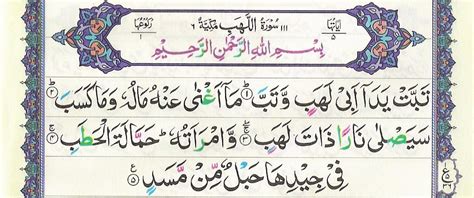 اٰیَاتُهَا ٥ ١١١ سُوْرَةُ اللَّهَبِ مَكِّیَّةٌ ٦ رُكُوْعُهَا ١
بِسْمِ اللهِ الرَّحْمٰنِ الرَّحِیْمِ
تَبَّتْ یَدَاۤ اَبِیْ لَهَبٍ وَّتَبَّ ۝١ مَاۤ اَغْنٰی عَنْهُ مَالُهٗ وَمَا كَسَبَ ۝٢
سَیَصْلٰی نَارًا ذَاتَ لَهَبٍ ۝٣ وَّامْرَاَتُهٗ ؕ حَمَّالَةَ الْحَطَبِ ۝٤
فِیْ جِیْدِهَا حَبْلٌ مِّنْ مَّسَدٍ ۝٥